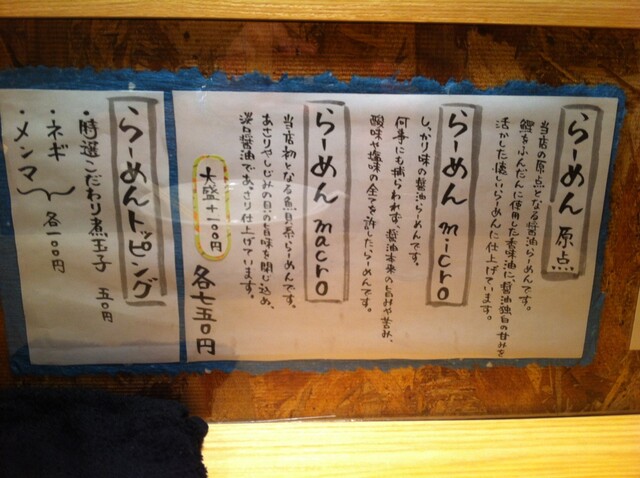 らーめん 原点
当店の原点となる醤油らーめんです。
鰹をふんだんに使用した香味油に、醤油独自の甘みを
活かした懐しいらーめんに仕上げています。
らーめん micro
しっかり味の醤油らーめんです。
何事にも捕らわれず、醤油本来の旨みや苦み、
酸味や塩味の全てを許したらーめんです。
らーめん macro
当店初となる魚貝系らーめんです。
あさりやしじみの貝の旨味を閉じ込め、
淡口醤油であっさり仕上げています。
大盛+一〇〇円
各七五〇円
らーめんトッピング
・特選こだわり煮玉子 五〇円
・ネギ
・メンマ
各一〇〇円